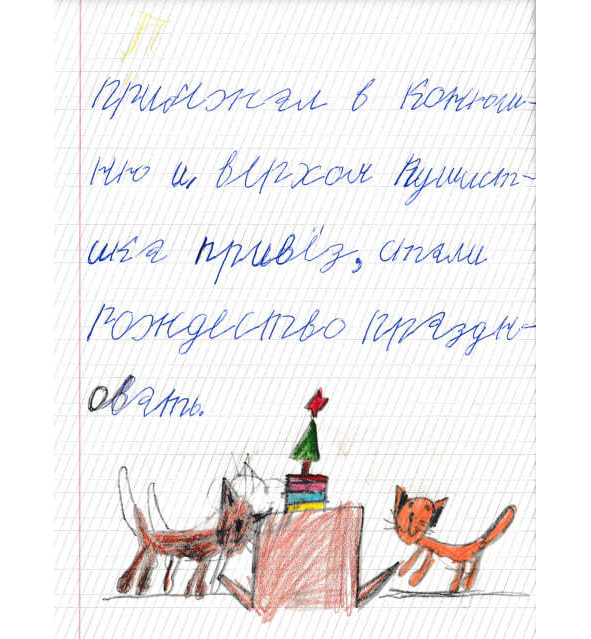 прибежал в конюш-
ню и, верхом Пушист-
ика привёз, стали
рождество праздн-
овать.